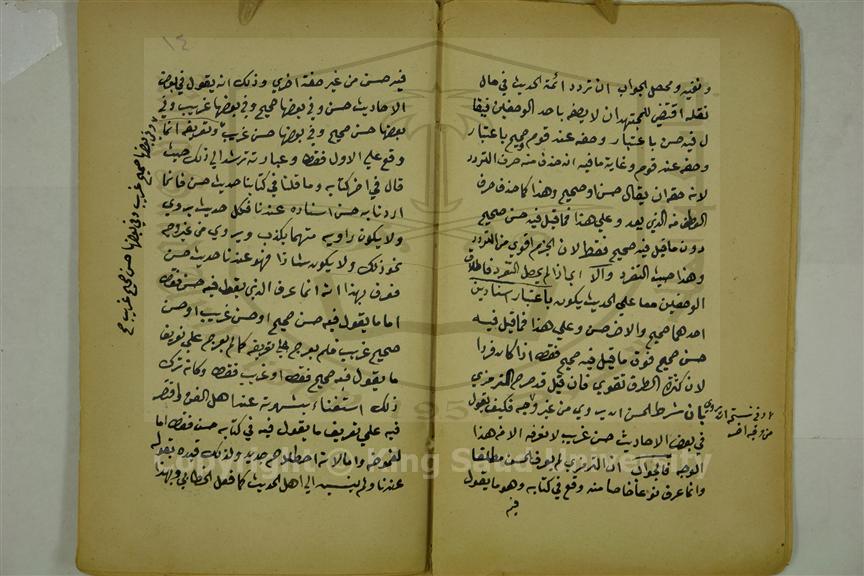 ونفيه ومحصل الجواب ان تردد ائمة الحديث في حال
نقله اقتضي للمجتهد ان لا يصفه باحد الوصفين فيقا
ل فيه حسن باعتبار وصفه عند قوم صحيح باعتبار
وصفه عند قوم وغاية ما فيه انه حذف منه حرف التردد
لانه حقه ان يقال حسن او صحيح وهذا كما حذف حرف
العطف من الذي بعد وعلي هذا فما قيل فيه حسن صحيح
دون ما قيل فيه صحيح فقط لان الجزم اقوي من التردد
وهذا حيث التفرد والا اي اذا لم يحصل التفرد فاطلاق
الوصفين معا علي الحديث يكون باعتبار اسنادين
احدهما صحيح والاخر حسن وعلي هذا فما قيل فيه
حسن صحيح فوق ما قيل فيه صحيح فقط اذا كان فردا
لان كثرة الطرق تقوي فان قيل قد صرح الترمذي
بان شرط الحسن ان يروي من غير وجه فكيف يقول
في بعض الاحاديث حسن غريب لا نعرفه الا من هذا
الوجه فالجواب ان الترمذي لم يعرف الحسن مطلقا
وانما عرف نوعا خاصا منه وقع في كتابه وهو ما يقول
فيه
١٤
فيه حسن من غير صفة اخري وذلك انه يقول في بعض
الاحاديث حسن وفي بعضها صحيح وفي بعضها غريب وفي
بعضها حسن صحيح وفي بعضها حسن غريب وتعريفه انما
وقع علي الاول فقط وعبارته ترشد الي ذلك حيث
قال في اخر كتابه وما قلنا في كتابنا حديث حسن فانما
اردنا به حسن اسناده عندنا فكل حديث يروي
ولا يكون راويه متهما بكذب ويروي من غير وجه
نحو ذلك ولا يكون شاذا فهو عندنا حديث حسن
فعرف بهذا انه انما عرف الذي يقول فيه حسن فقط
اما ما يقول فيه حسن صحيح او حسن غريب او حسن
صحيح غريب فلم يعرج علي تعريفه كما لم يعرج علي تعريف
ما يقول فيه صحيح فقط او غريب فقط وكانه ترك
ذلك استغناء بشهرته عند اهل الفن واقتصر
فيه علي تعريف ما يقول فيه في كتابه حسن فقط اما
لغموضه واما لانه اصطلاح جديد ولذلك قيده بقوله
عندنا ولم ينسبه الي اهل الحديث كما فعل الخطابي وبهذا
وفي بعضها صحيح غريب وفي بعضها حسن صحيح غريب صح
Copyright © King Saud University
195